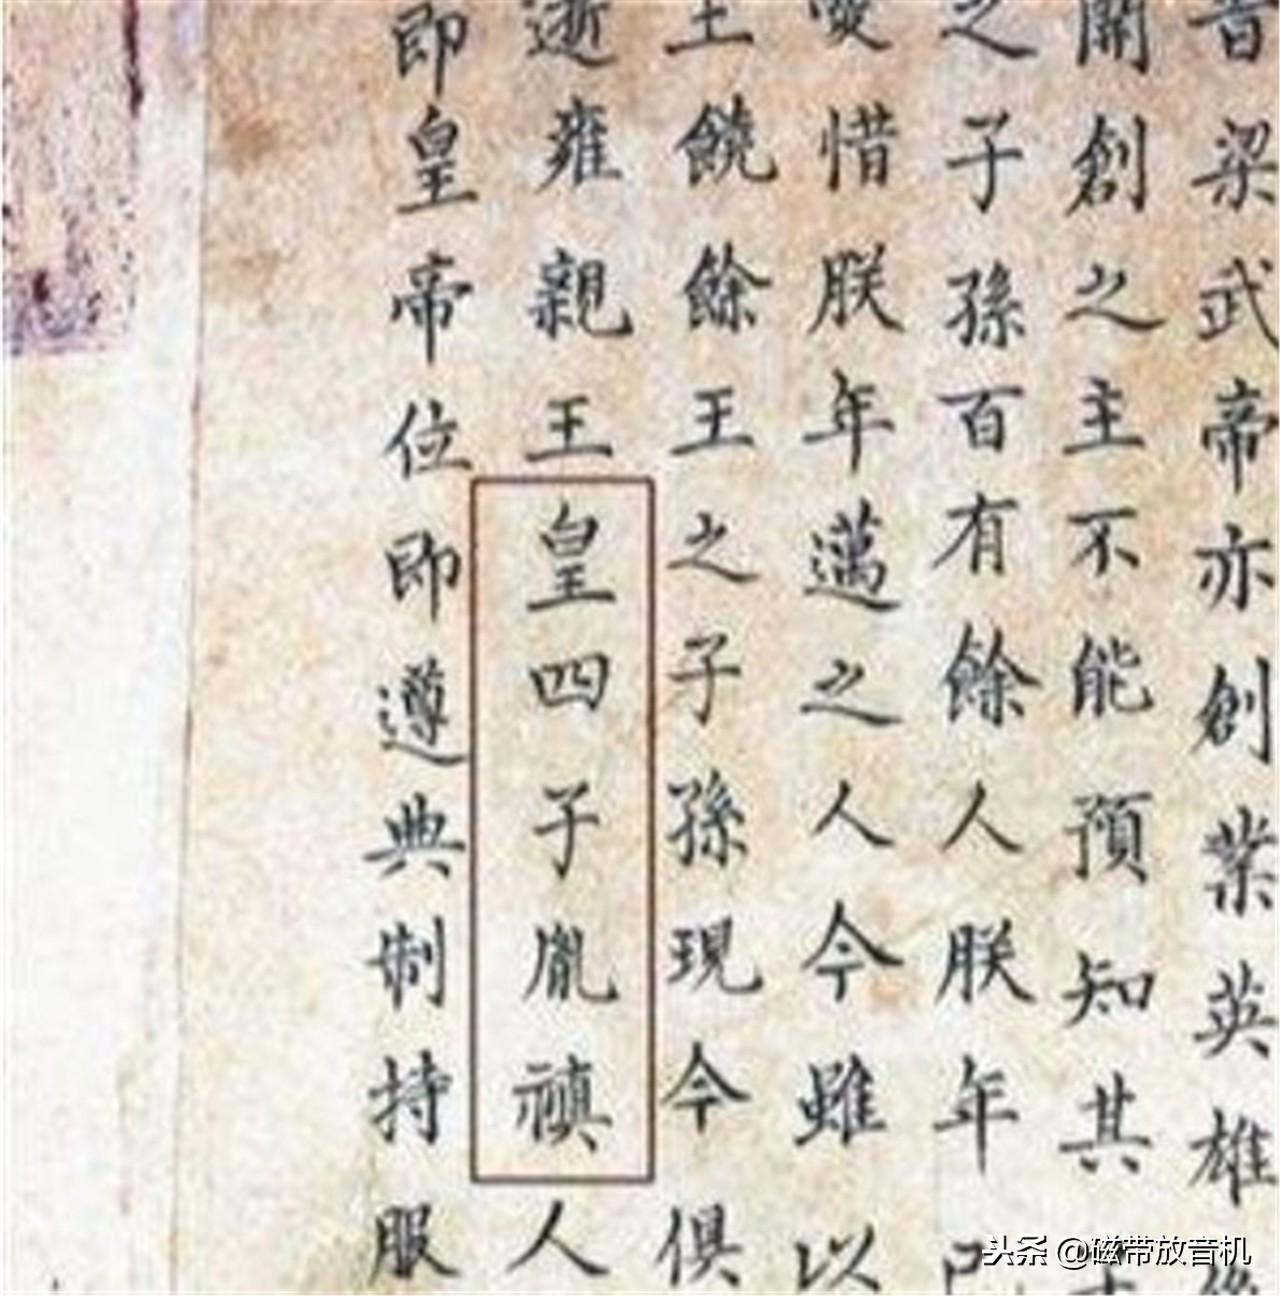 昔梁武帝亦創業英雄
開創之主不能預知其
之子孫百有餘人朕年已
愛惜朕年邁之人今雖以
王饒餘王之子孫現今俱
逝雍親王皇四子胤禛人
即皇帝位即遵典制持服
头条 @磁带放音机